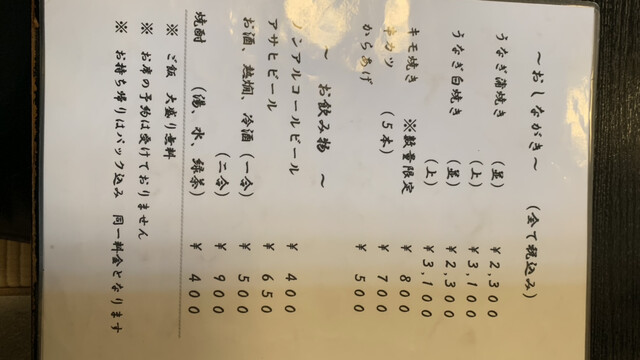 ～おしながき～ (全て税込み)
うなぎ蒲焼き (並) ¥2,300
(上) ¥3,100
うなぎ白焼き (並) ¥2,300
(上) ¥3,100
キモ焼き ※数量限定 ¥800
カツ (5本) ¥700
からあげ ¥500
～ お飲み物 ～
ノンアルコールビール ¥400
アサヒビール ¥650
お酒、熱燗、冷酒 (一合) ¥500
(二合) ¥900
焼酎 (湯、水、緑茶) ¥400
※ ご飯 大盛り無料
※ お席の予約は受けておりません
※ お持ち帰りはパック込み 同一料金となります